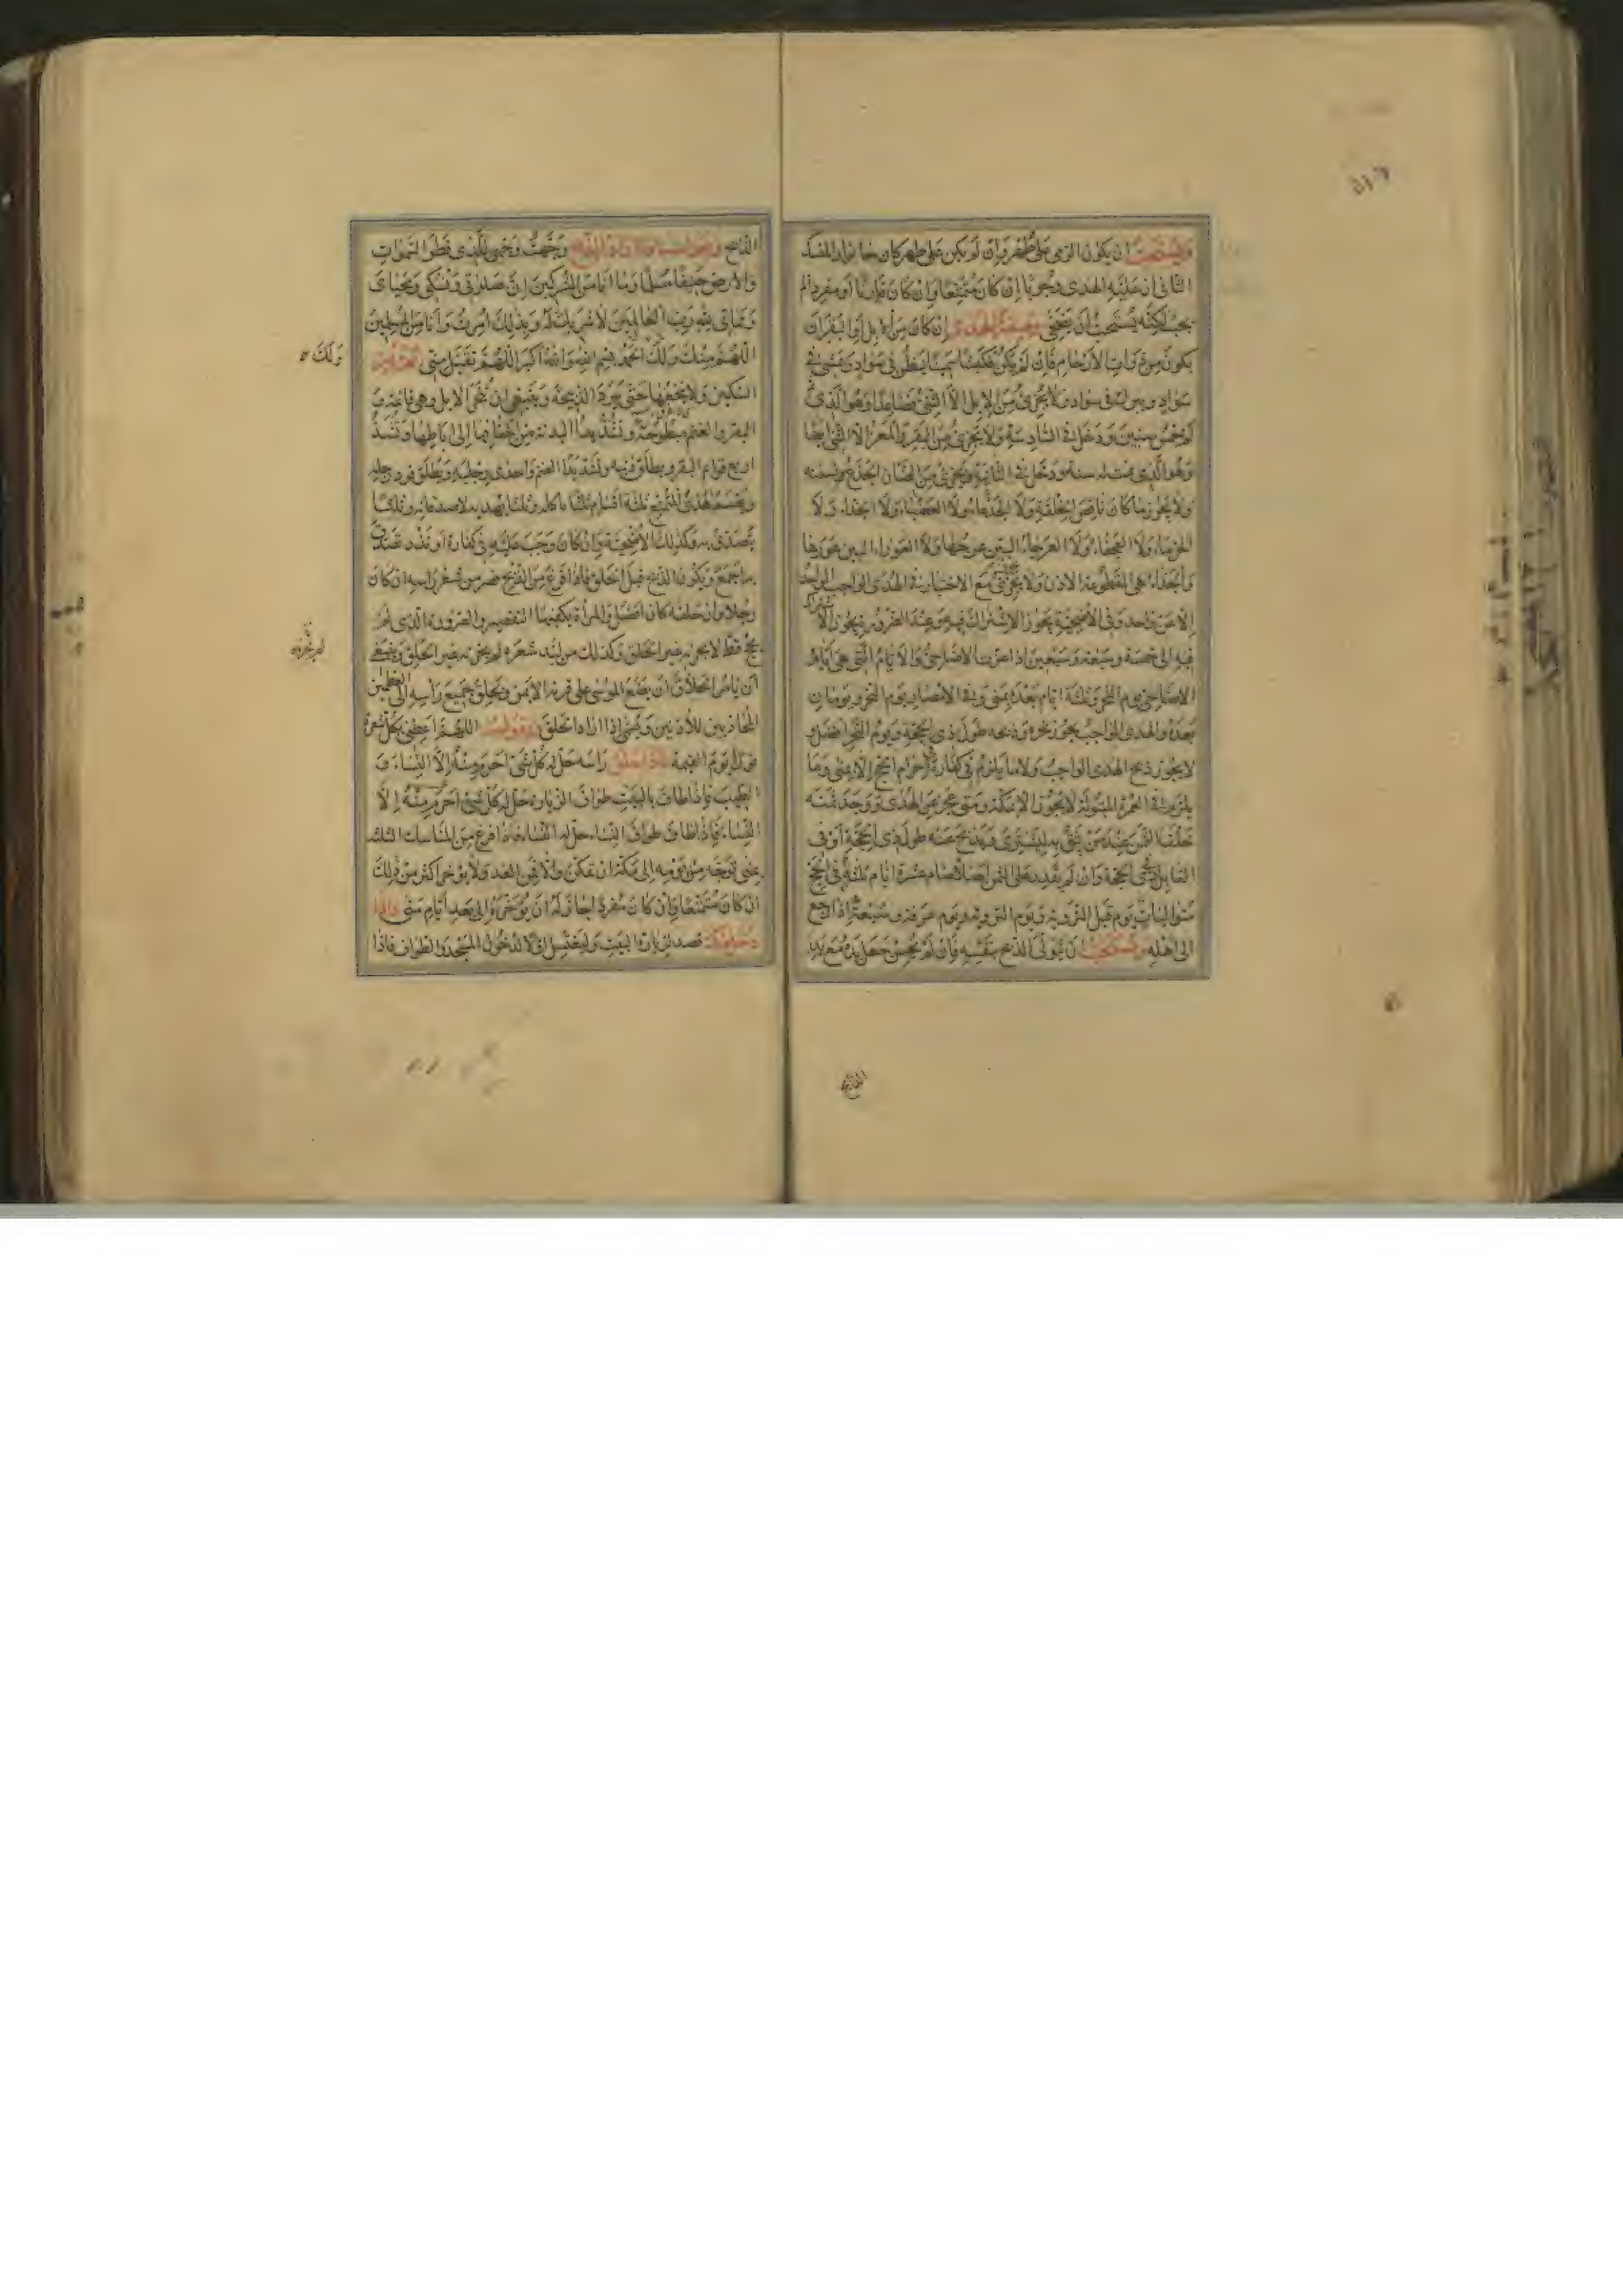 ويستحب ان يكون الرمى على طهر وان لم يكن على طهر كان جائزا المنسك
الثانى ان عليه الهدى وجوبا ان كان متمتعا وان كان قارنا او مفردا لم
يجب لكنه يستحب ان يضحى وصفة الهدى ان كان من الابل او البقر ان
يكون من ذوات الارحام فان لم يكن فكبشا سمينا ينظر فى سواد ويمشى فى
سواد ويبرك فى سواد ولا يجزى من الابل الا الثنى فصاعدا وهو الذى
له خمس سنين ودخل فى السادسة ولا يجزى من البقر والمعز الا الثنى ايضا
وهو الذى تمت له سنة ودخل فى الثانية ويجزى من الضان الجذع لسنه
ولا يجوز ما كان ناقص الخلقة ولا الجذعاء ولا العضباء ولا الجذاء ولا
الخرماء ولا العجفاء ولا العرجاء البين عرجها ولا العوراء البين عورها
والجذاء هى المقطوعة الاذن ولا يجزى مع الاختيار فى الهدى الواجب الواحد
الا عن واحد وفى الاضحية يجوز الاشتراك فيه وعند الضرورة يجوز الاشتراك
فيه الى خمسة وسبعة وسبعين اذا عزت الاضاحى والايام التى هى ايام
الاضاحى يوم النحر وثلثة ايام بعده بمنى وفى الامصار يوم النحر ويومان
بعده والهدى الواجب يجوز نحره وذبحه طول ذى الحجة ويوم النحر افضل و
لا يجوز ذبح الهدى الواجب ولا ما يلزم فى كفارة احرام الحج الا بمنى وما
يلزم فى العمرة المبتولة لا يجوز الا بمكة ومتى عجز عن الهدى ووجد ثمنه
خلف الثمن عند من يثق به ليشترى ويذبح عنه طول ذى الحجة او فى
القابل فى ذى الحجة وان لم يقدر على الثمن ايضا صام عشرة ايام ثلثة فى الحج
متواليات يوم قبل التروية ويوم التروية ويوم عرفة وسبعة اذا رجع
الى اهله ويستحب ان يتولى الذبح بنفسه فان لم يحسن جعل يده مع يد
الذابح
الذابح ويقول اذا اراد الذبح وجهت وجهى للذى فطر السموات
والارض حنيفا مسلما وما انا من المشركين ان صلوتى ونسكى ومحياى
ومماتى لله رب العالمين لا شريك له وبذلك امرت وانا من المسلمين
اللهم منك ولك الحمد بسم الله والله اكبر اللهم تقبل منى ثم يمر
ولك
السكين ولا ينخعها حتى تبرد الذبيحة وينبغى ان ينحر الابل وهى قائمة و
البقر والغنم مبطوحة وتشد يدا البدنة من اخفافهما الى اباطها وتشد
اربع قوايم البقر ويطلق ذنبه وتشد يدا الغنم واحدى رجليه ويطلق فرد رجليه
ويقسم هدى المتمتع ثلثة اقسام ثلثا ياكله وثلثا يهديه لاصدقائه وثلثا
يتصدق به وكذلك الاضحية وان كان وجب عليه فى كفارة او نذر تصدق
باجمع ويكون الذبح قبل الحلق فاذا فرغ من الذبح قصر من شعر راسه ان كان
رجلا وان حلقه كان افضل والمراة يكفيها التقصير والصرورة الذى لم
يحج قط لا يجزيه غير الحلق وكذلك من لبد شعره لم يجزئه غير الحلق وينبغى
لم يجزه
ان يامر الحلاق ان يضع الموسى على قرنه الايمن ويحلق جميع راسه الى العظمين
المحاذيين للاذنين ويسمى اذا اراد الحلق ويقول اللهم اعطنى بكل شعرة
نورا يوم القيمة فاذا حلق راسه حل له كل شئ احرم منه الا النساء و
الطيب فاذا طاف بالبيت طواف الزيارة حل له كل شئ احرم منه الا
النساء فاذا طاف طواف النساء حل له النساء فاذا فرغ من المناسك الثلثة
بمنى توجه من يومه الى مكة ان تمكن والا فمن الغد ولا يؤخر اكثر من ذلك
ان كان متمتعا وان كان مفردا جاز له ان يؤخره الى بعد ايام منى فاذا
دخل مكة قصد زيارة البيت وليغتسل اولا لدخول المسجد والطواف فاذا